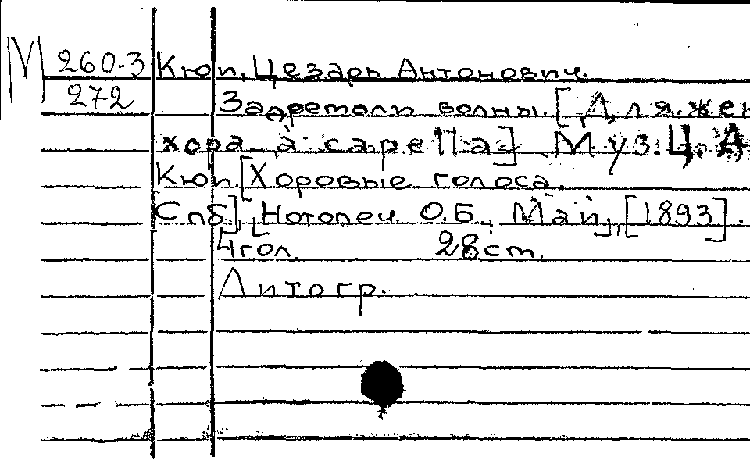 М 260-3 Кюи, Цезарь Антонович.
272 Задремали волны. [Для жен
хора a capella]. Муз. Ц. А
Кюи. [Хоровые голоса.
Спб], [Нотопеч. О.Б. Май], [1893].
4 гол. 28 ст.
Литогр.